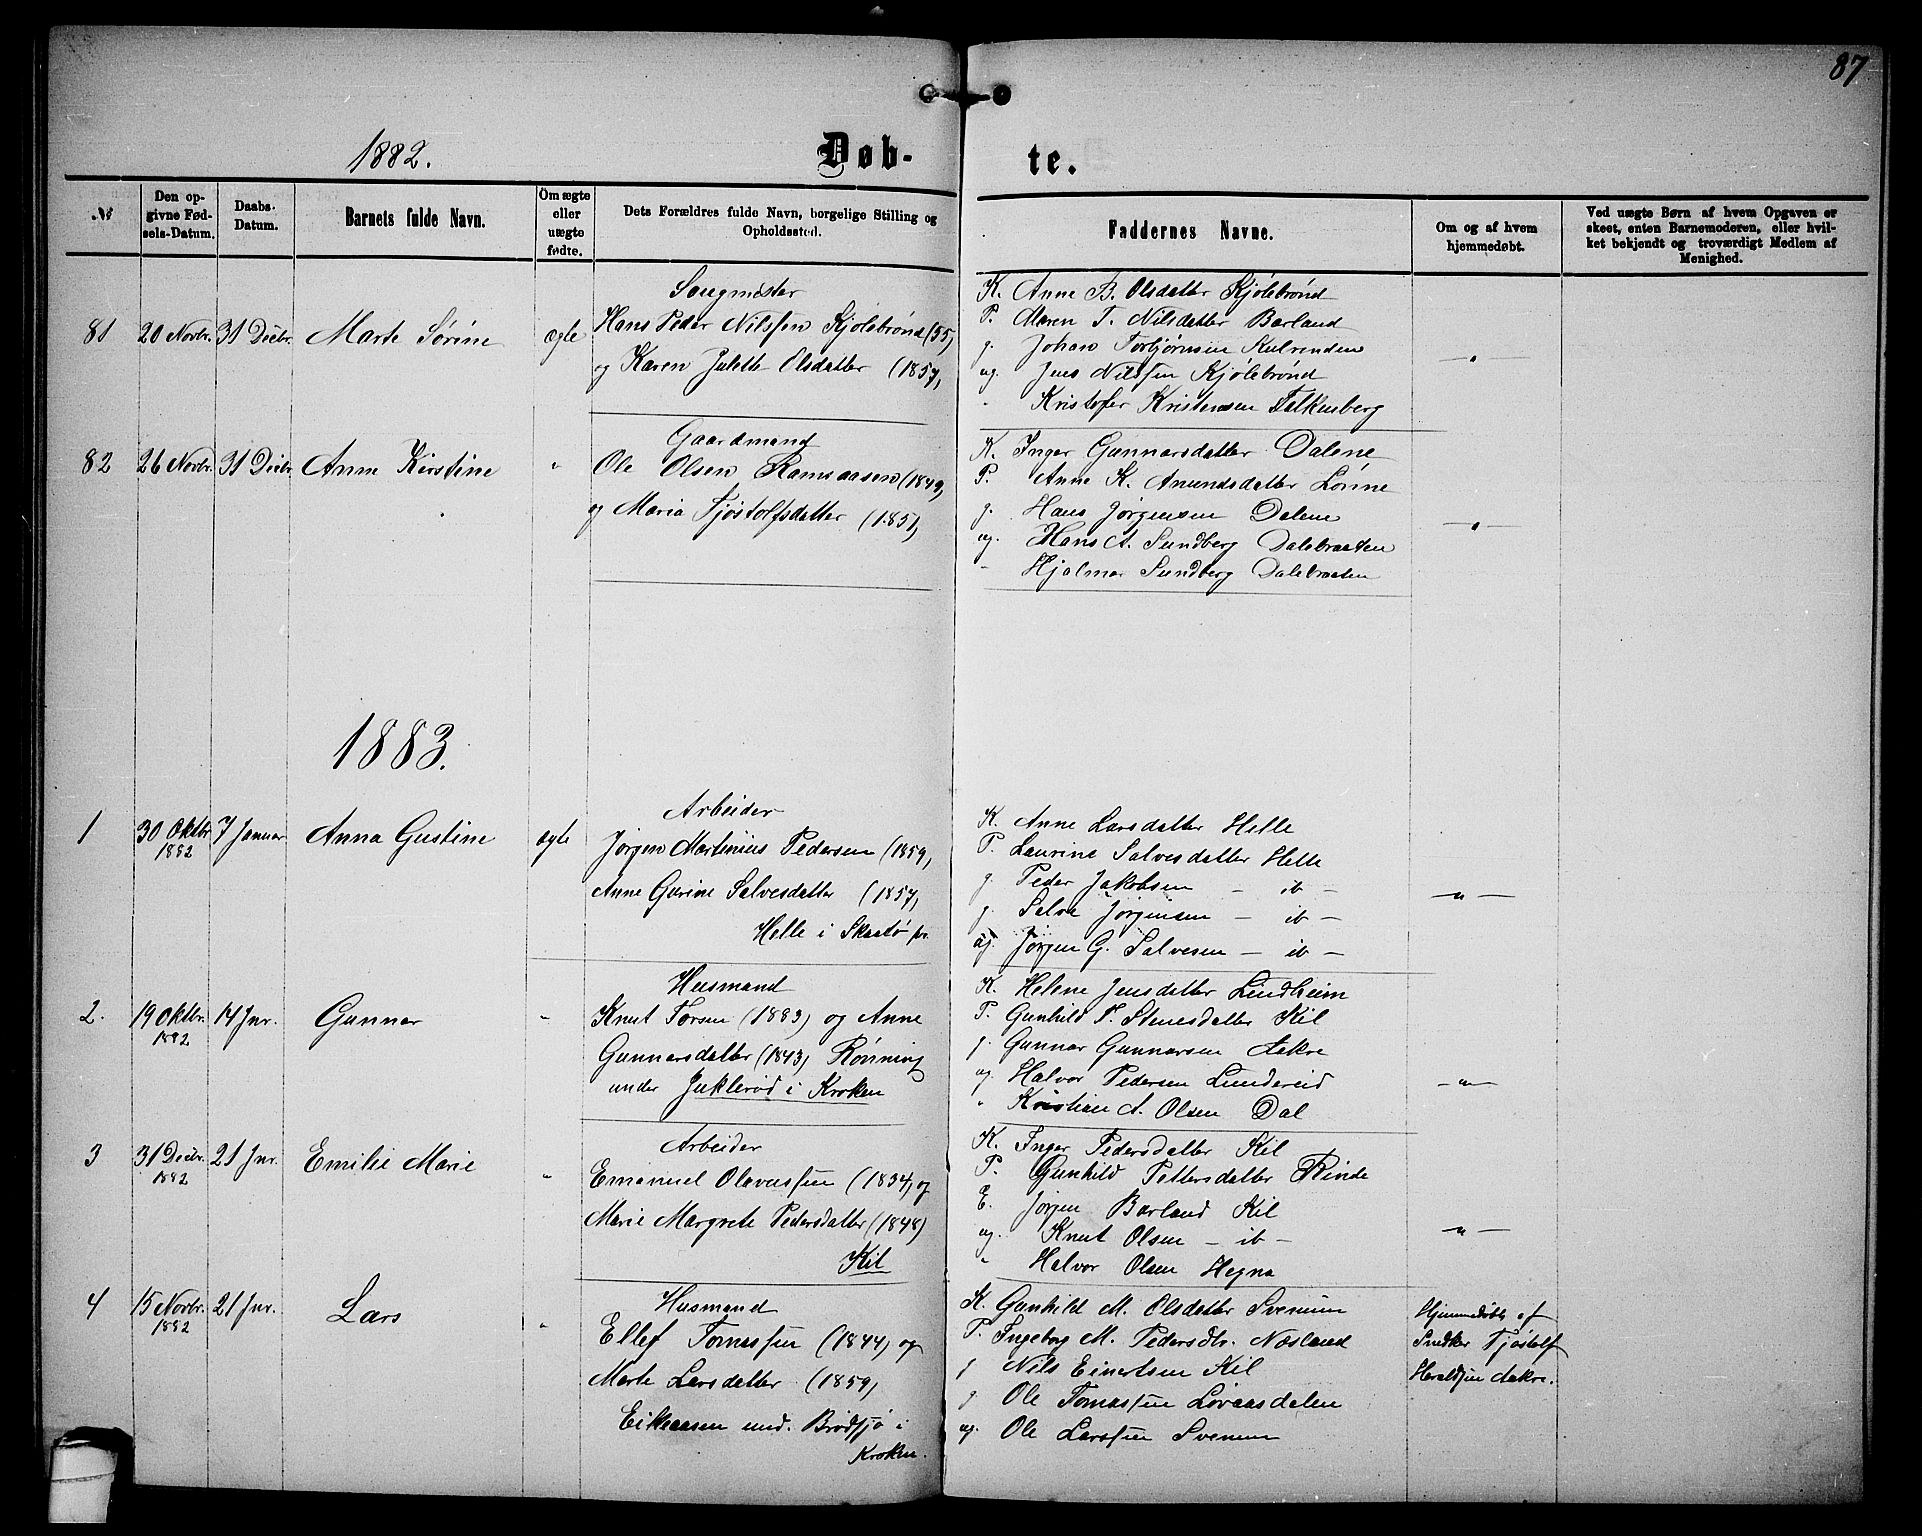 87
1882.
Døb-
te.
№
Den op-
givne Fød-
sels-Datum.
Daabs-
Datum.
Barnets fulde Navn.
Om ægte
eller
uægte
fødte.
Dets Forældres fulde Navn, borgelige Stilling og
Opholdssted.
Faddernes Navne.
Om og af hvem
hjemmedøbt.
Ved uægte Børn af hvem Opgaven er
skeet, enten Barnemoderen, eller hvil-
ket bekjendt og troværdigt Medlem af
Menighed.
81 20 Novbr. 31 Decbr. Marte Sørine ægte
Saugmester
Hans Peder Nilssen Kjølebrønd (55,
og Karen Julette Olsdatter (1857,
K. Anne B. Olsdatter Kjølebrønd
P. Maren T. Nilsdatter Barland
g. Johan Torbjørnsen
ug. Jens Nilssen Kjølebrønd
" Kristofer Kristensen Falkenberg
82 26 Novbr. 31 Decbr. Anne Kirstine "
Gaardmand
Ole Olsen Ramsaasen (1849,
og Maria Tjøstolfsdatter (1851,
K. Inger Gunnarsdatter Dalene
P. Anne K. Anundsdatter Lønne
g. Hans Jørgensen Dalene
ug. Hans A. Sundberg Dalebraaten
" Hjalmar Sundberg Dalebraaten
1883.
1 30 Oktbr. 1882 7 Januar Anna Gustine ægte
Arbeider
Jørgen Martinius Pedersen (1859,
Anne Gurine Salvesdatter (1857,
Helle i Skaatø pr.
K. Anne Larsdatter Helle
P. Laurine Salvesdatter Helle
g. Peder Jakobsen - ib -
g. Salve Jørgensen - ib -
ug. Jørgen G. Salvesen - ib -
- " -
2. 19 Oktbr. 1882 14 Jnr. Gunnar "
Husmand
Knut Torsen (1883) og Anne
Gunnarsdatter (1843, Rønning
under Juklerød i Kroken
K. Helene Jensdatter Lindheim
P. Gunhild T. Stenesdatter Kil
g. Gunnar Gunnarsen Aakre
ug. Halvor Pedersen Lundereid
" Kristian A. Olsen Dal
- " -
3 31 Decbr. 1882 21 Jnr. Emilie Marie "
Arbeider
Emanuel Olavessen (1834, og
Marie Margrete Pedersdatter (1848)
Kil
K. Inger Pedersdatter Kil
P. Gunhild Pettersdatter Rinde
E. Jørgen Barland Kil
ug. Knut Olsen - ib -
" Halvor Olsen Hegna
- " -
4 15 Novbr. 1882 21 Jnr. Lars "
Husmand
Ellef Tomassen (1844, og
Marte Larsdatter (1859,
Eikeaasen und. Brødsjø i
Kroken.
K. Gunhild M. Olsdatter Svenum
P. Ingeborg M. Pedersdtr. Næsland
g Nils Einertsen Kil
g. Ole Tomassen Lovaasdalen
ug. Ole Larssen Svenum
Hjemmedøbt af
Snedker Tjøstolf
Heraldsen Aakre.